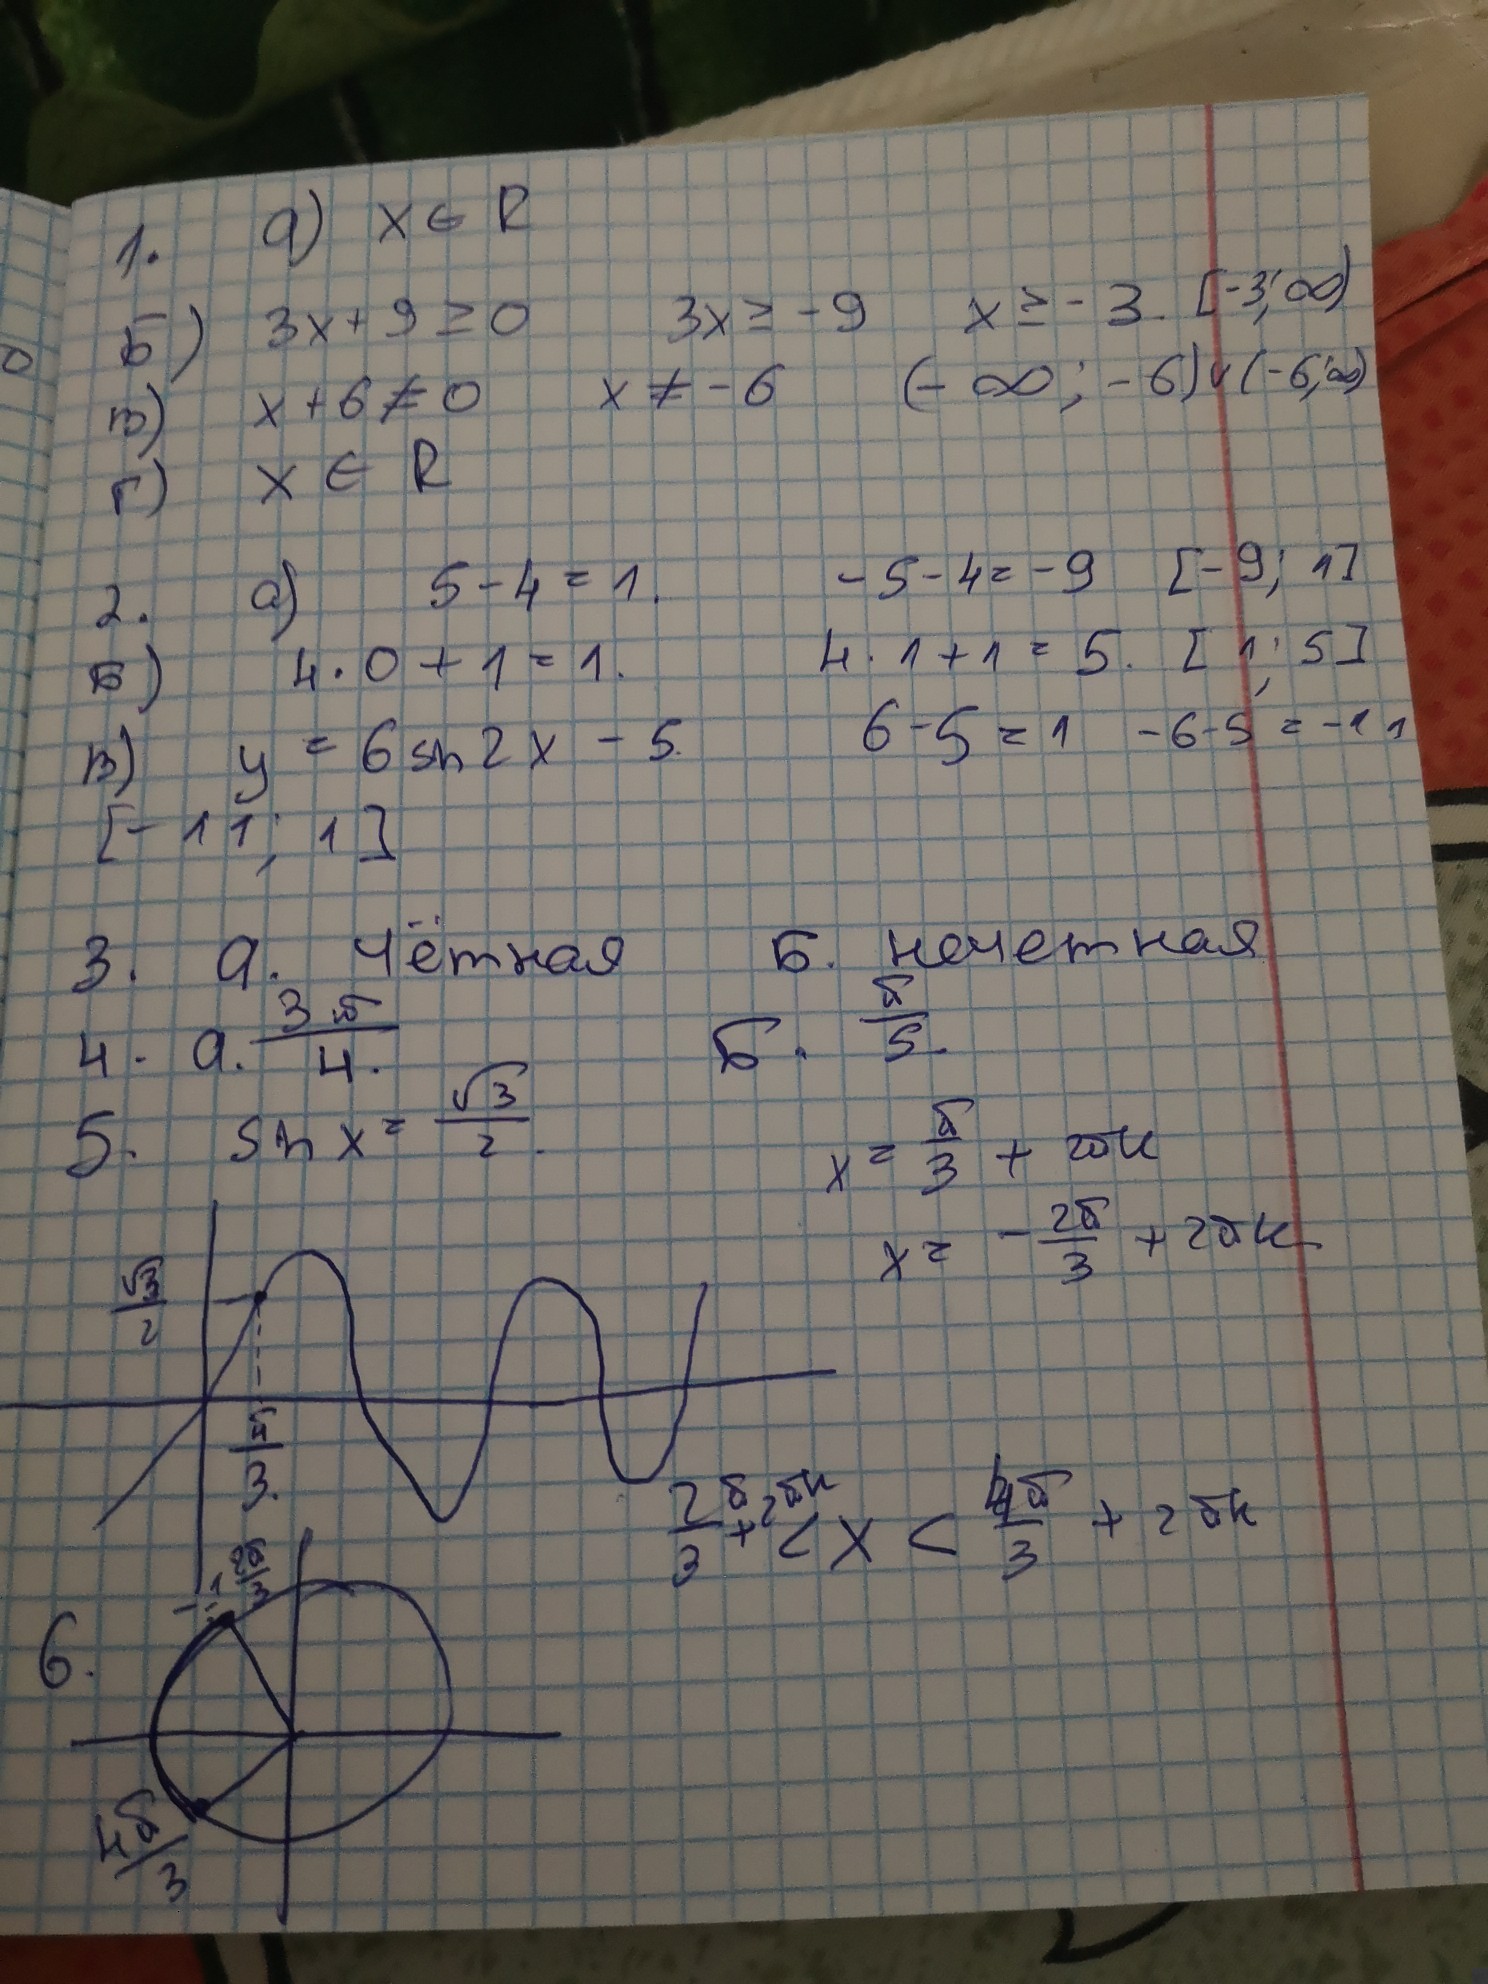 1. а) x ∈ R
Б) 3x + 9 ≥ 0 3x ≥ -9 x ≥ -3. [-3; ∞)
в) x + 6 ≠ 0 x ≠ -6 (-∞; -6) ∪ (-6; ∞)
г) x ∈ R
2. а) 5 - 4 = 1. -5 - 4 = -9 [-9; 1]
Б) 4 · 0 + 1 = 1. 4 · 1 + 1 = 5. [1; 5]
в) y = 6 sin 2x - 5. 6 - 5 = 1 -6 - 5 = -11
[-11; 1]
3. а. чётная Б. нечетная
4. а. 3π/4. Б. π/5.
5. sin x = √3/2. x = π/3 + 2πк
x = -2π/3 + 2πк
√3/2
π/3.
2π/3 + 2πк < x < 4π/3 + 2πк
2π/3
6.
4π/3